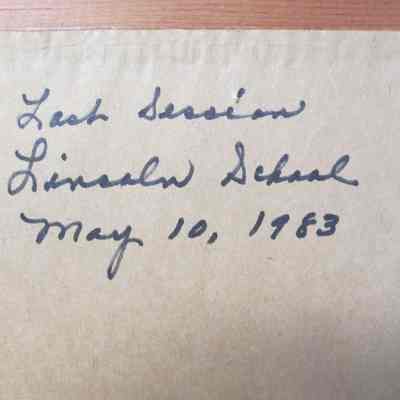 Last Session
Lincoln School
May 10, 1983